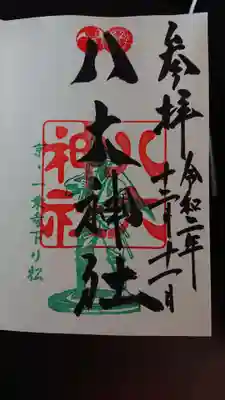 奉拝
令和二年
十二月十一日
八大神社
八大
神社
京・一乗寺下り松